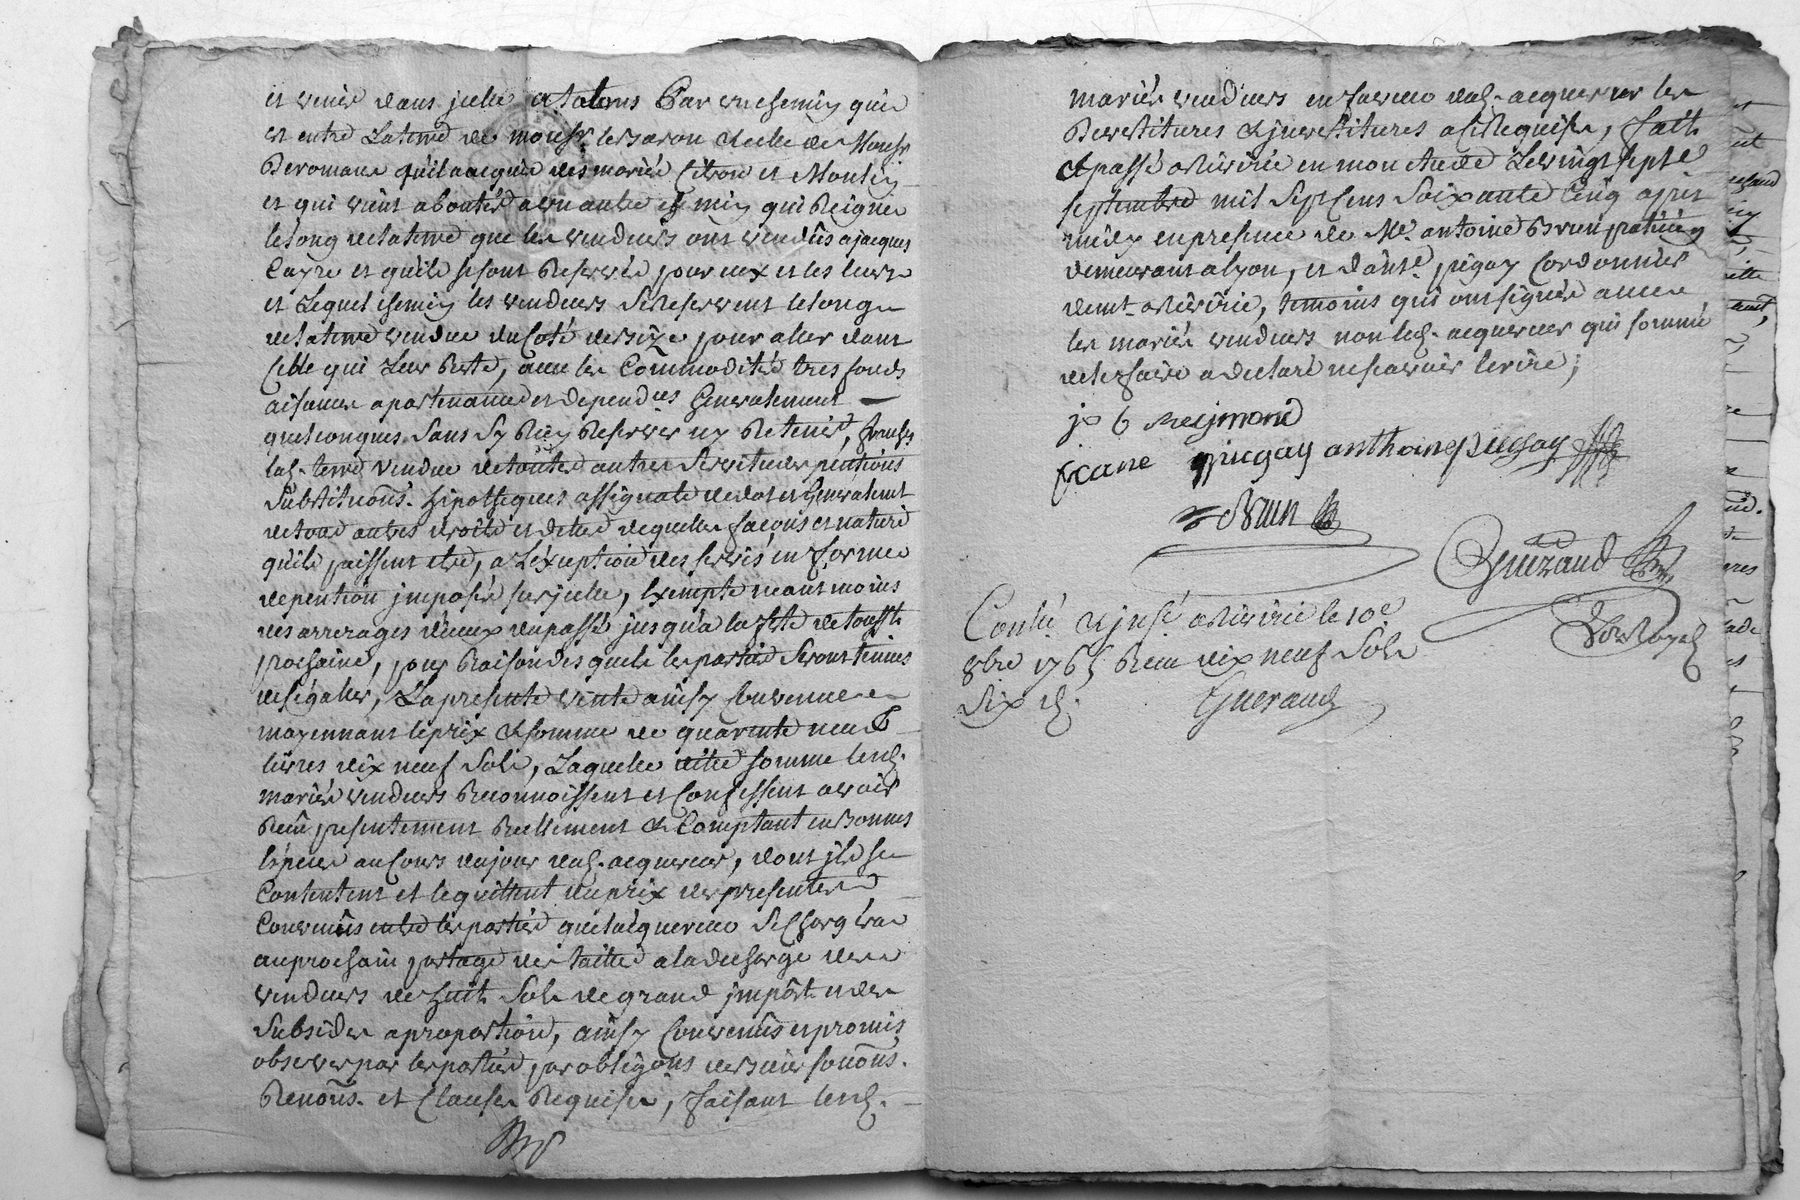 et venir dans jcelle a talons Par un chemin qui
est entre La terre de monsr. le baron & celle de Monsr.
Deromans qu'il a acquis des mariés Citron et Moulin
et qui vient aboutir a un autre chemin qui Reigne
le long de la terre que les vendeurs ont vendûs a jacques
Cayre et qu'ils se sont Reservés pour eux et les leurs
et Lequel chemin les vendeurs se reservent le long
de la terre vendue du coté de bize pour aller dans
Celle qui Leur Reste, avec les Commodités tres fonds
aisances apartenances et dependces Generalement
quelconques sans sy Rien Reserver ny Retenir, franche
lad. terre vendue de toutes autres servitudes pentions
substituons. hipotheques assignats de dot et Generalemt
de tous autres droits et dettes de quelles façons et nature
qu'ils puissent etre, a L'éxception des servis en forme
de pention jmposés sur jcelle, Exempte neant moins
des arrerages d'iceux du passé jusqu'a la fete de toussts
prochaine, pour Raison des quels les parties seront tenues
de s'égaller, La presente vente ainsy convenue
moyennant le prix & somme de quarente neuf
livres dix neuf sols, Laquelle ditte somme lesd.
mariés vendeurs Reconnoissent et Confessent avoir
Reçû presentement Reellement & Comptant en bonnes
Espèces au cours du jour dud. acquereur, dont jls se
Contentent et le quittent du prix des presentes
Convenûs entre les parties que l'acquereur se Chargéra
au prochain partage des tailles a la decharge des
vendeurs de huit sols de grand jmpôt et des
subsides a proportion, ainsy Convenûs et promis
observer par les parties par obligons de biens soûons.
Renons. et Clauses Requises, faisant lesd.
mariés vendeurs en faveur dud. acquereur les
Devestitures & jnvestitures a ce Requises, fait
& passé a en mon étude Le vingt sept e
septembre mil sept cens soixante cinq apres
midy en presence de Me. antoine Brun praticien
demeurant a Lyon, et d'ante. pigay Cordonnier
demt. a, temoins qui ont signés avec
les mariés vendeurs non led. acquereur qui sommé
de le faire a declaré ne sçavoir écrire;
jo b Reymond
frane pigay anthoine pigay
Brun
Gueraud
Nore Royal
Contlé. & jnsé a le 10e.
8bre 1765 Reçu dix neuf sols
Six d.
Gueraud